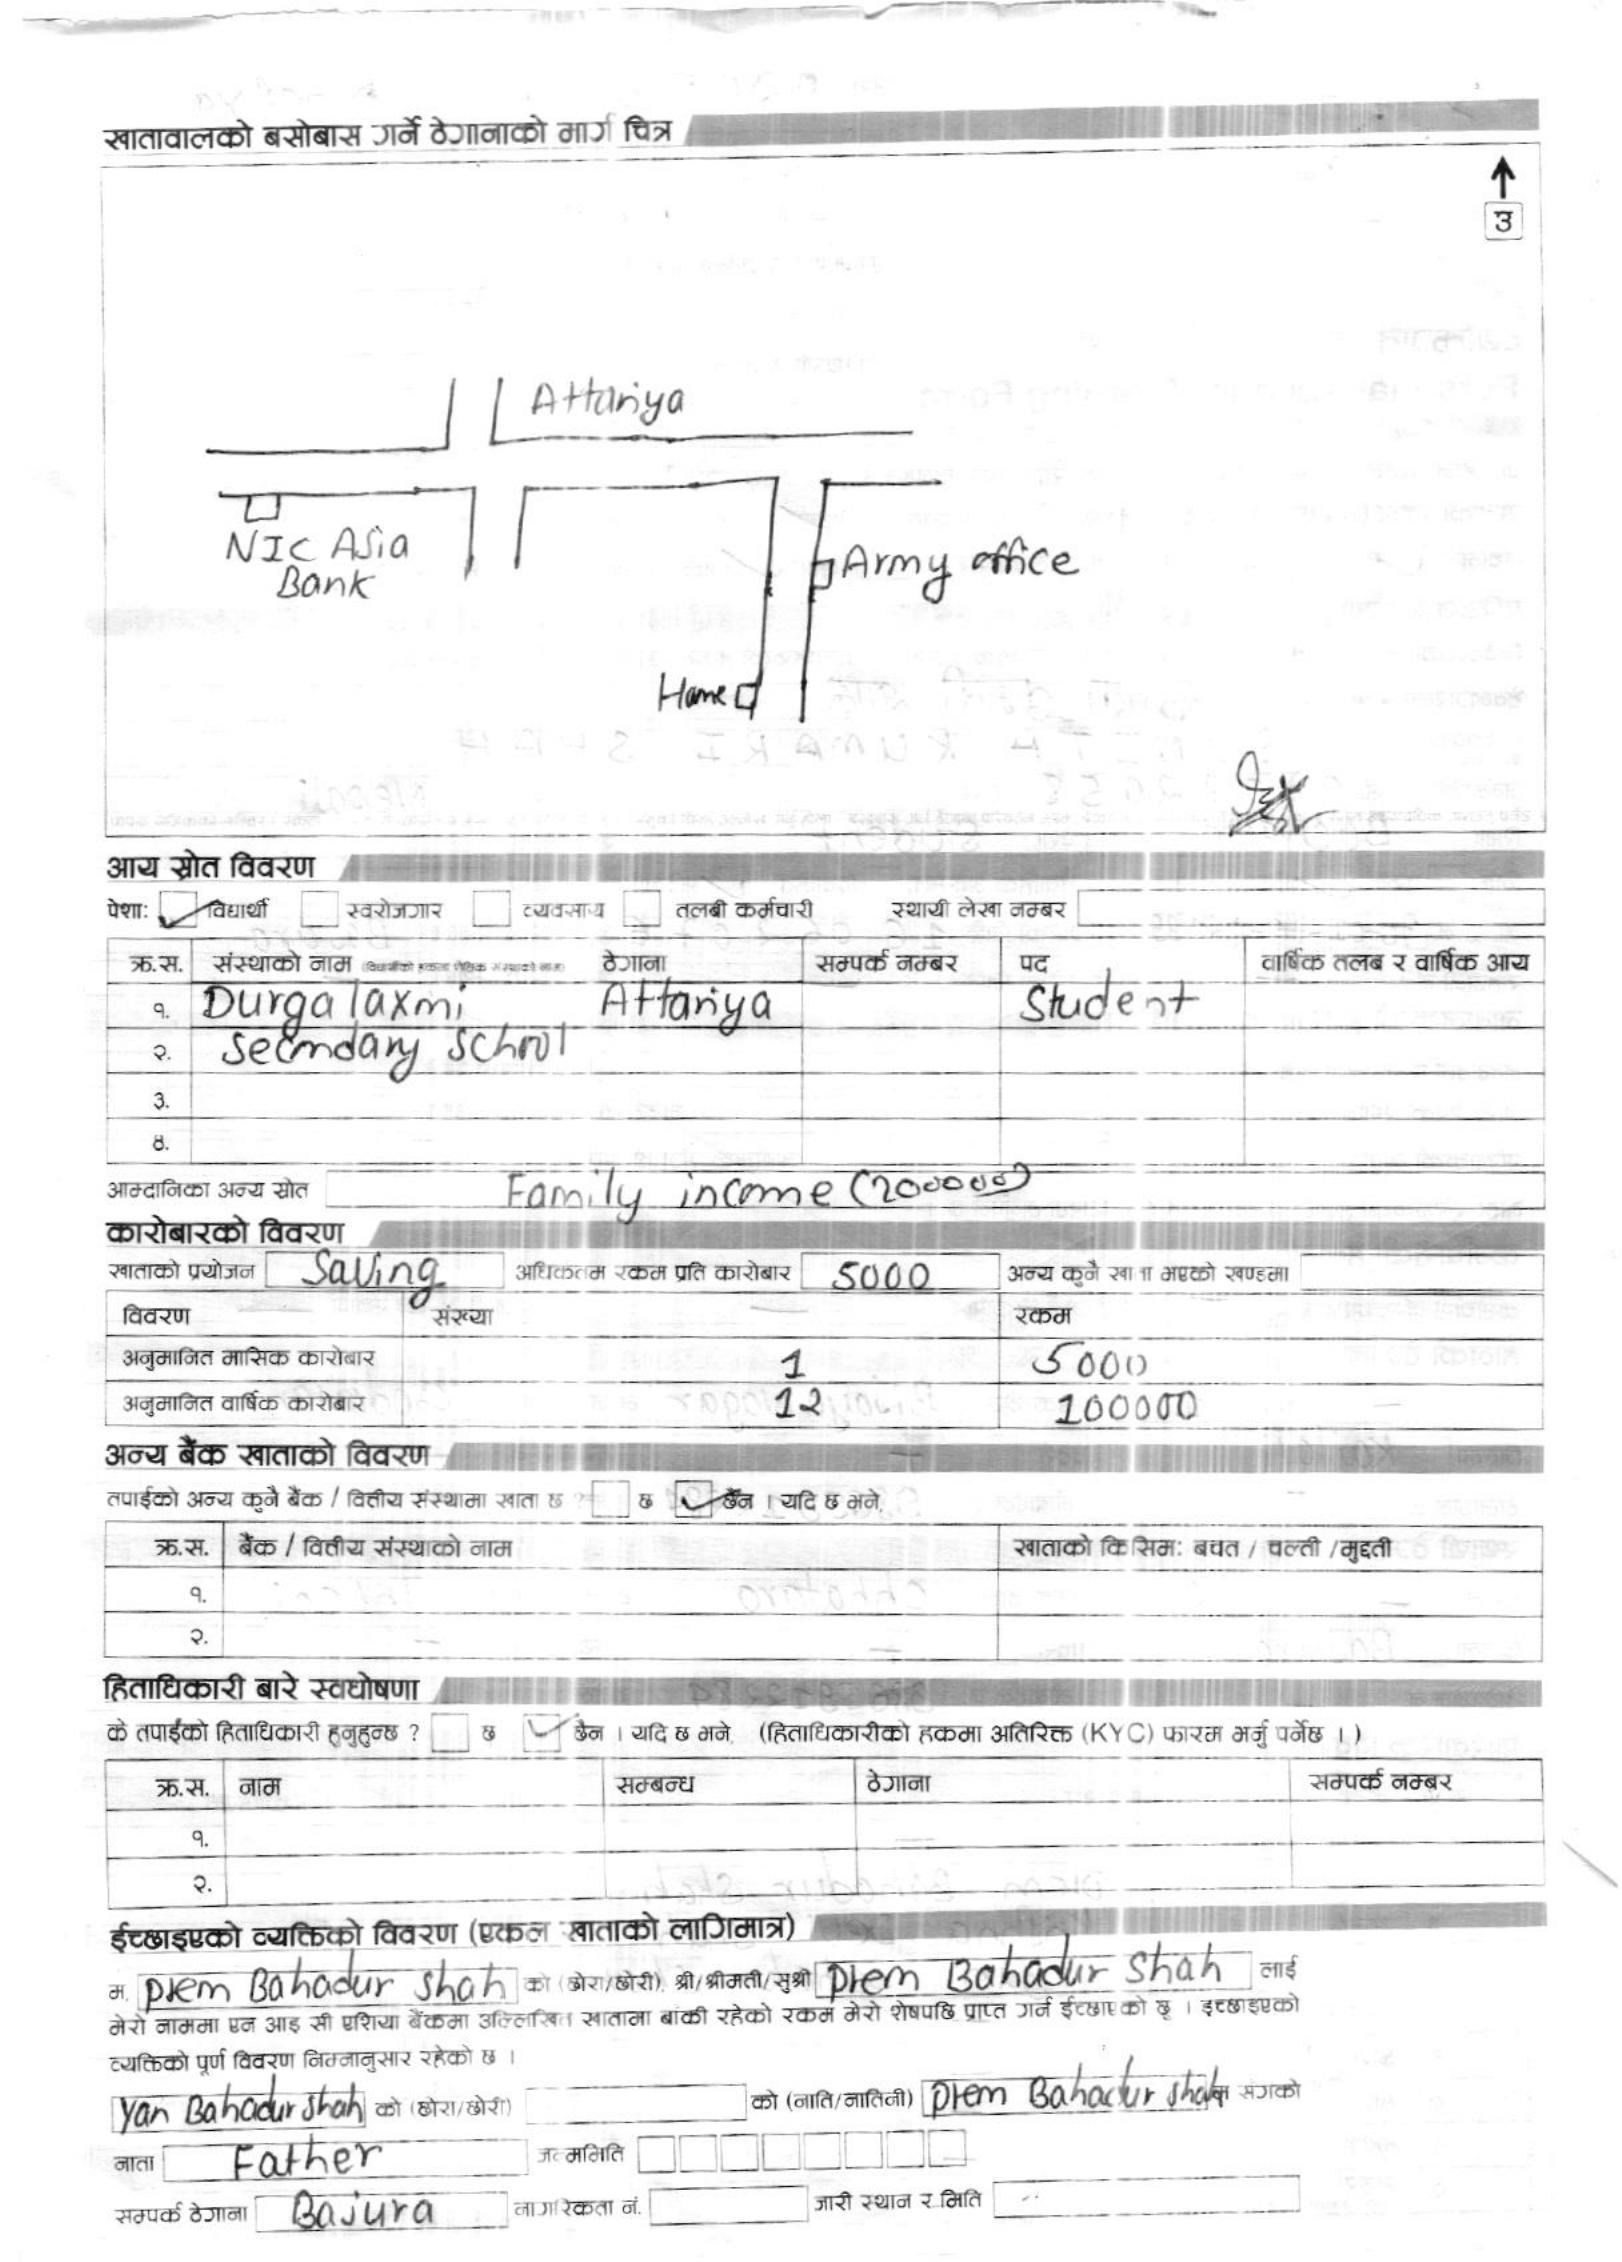 खातावालको बसोबास गर्ने ठेगानाको मार्ग चित्र
उ
Attariya
NIC Asia
Bank
Army office
Home
आय स्रोत विवरण
पेशा: विद्यार्थी स्वरोजगार व्यवसाय तलबी कर्मचारी स्थायी लेखा नम्बर
क्र.स. संस्थाको नाम (विद्यार्थीको हकमा शैक्षिक संस्थाको नाम) ठेगाना सम्पर्क नम्बर पद वार्षिक तलब र वार्षिक आय
१. Durgalaxmi Attariya Student
२. Secondary School
३.
४.
आम्दानिका अन्य स्रोत Family income (200000)
कारोबारको विवरण
खाताको प्रयोजन Saving अधिकतम रकम प्रति कारोबार 5000 अन्य कुनै खाता भएको खण्डमा
विवरण संख्या रकम
अनुमानित मासिक कारोबार 1 5000
अनुमानित वार्षिक कारोबार 12 100000
अन्य बैंक खाताको विवरण
तपाईको अन्य कुनै बैंक / वित्तीय संस्थामा खाता छ ? छ छैन । यदि छ भने,
क्र.स. बैंक / वित्तीय संस्थाको नाम खाताको किसिम: बचत / चल्ती /मुद्दती
१.
२.
हिताधिकारी बारे स्वघोषणा
के तपाईंको हिताधिकारी हुनुहुन्छ ? छ छैन । यदि छ भने, (हिताधिकारीको हकमा अतिरिक्त (KYC) फारम भर्नु पर्नेछ ।)
क्र.स. नाम सम्बन्ध ठेगाना सम्पर्क नम्बर
१.
२.
ईच्छाइएको व्यक्तिको विवरण (एकल खाताको लागिमात्र)
म, Prem Bahadur Shah को (छोरा/छोरी), श्री/श्रीमती/सुश्री Prem Bahadur Shah लाई
मेरो नाममा एन आइ सी एशिया बैंकमा उल्लिखित खातामा बांकी रहेको रकम मेरो शेषपछि प्राप्त गर्न ईच्छाएको छु । इच्छाइएको
व्यक्तिको पूर्ण विवरण निम्नानुसार रहेको छ ।
Yan Bahadur Shah को (छोरा/छोरी) को (नाति/नातिनी) Prem Bahadur Shah संगको
नाता Father जन्ममिति
सम्पर्क ठेगाना Bajura नागरिकता नं. जारी स्थान र मिति